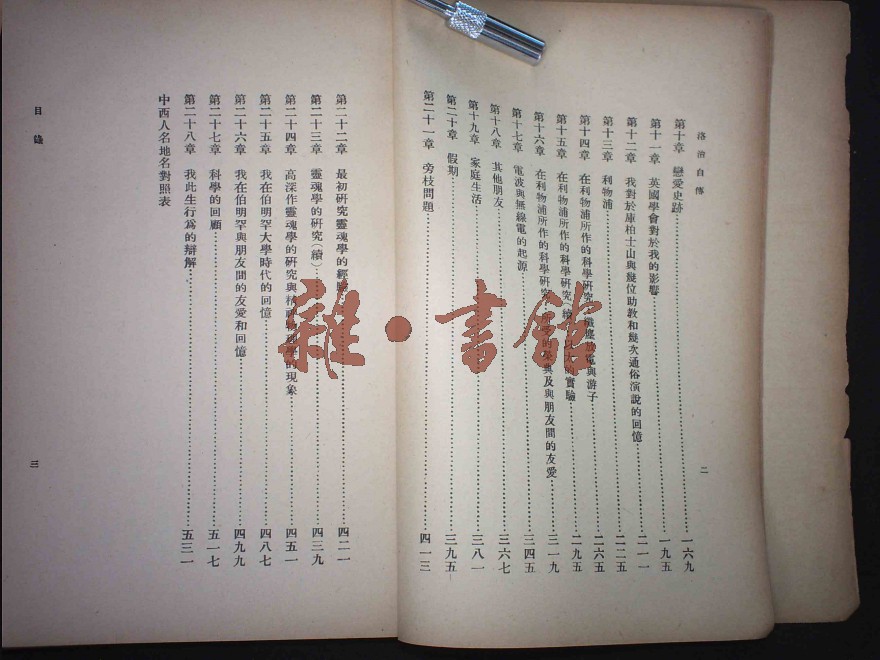 洛治自傳
二
第十章 戀愛史跡 一六九
第十一章 英國學會對於我的影響 一九五
第十二章 我對於庫柏士山與幾位助教和幾次通俗演說的回憶 二一一
第十三章 利物浦 二二五
第十四章 在利物浦所作的科學研究 塵 電與游子 二六五
第十五章 在利物浦所作的科學研究(續) 以太的實驗 二九五
第十六章 在利物浦所作的科學研究 的榮典及與朋友間的友愛 三一九
第十七章 電波與無線電的起源 三四五
第十八章 其他朋友 三六七
第十九章 家庭生活 三八一
第二十章 假期 三九五
第二十一章 旁枝問題 四一三
第二十二章 最初研究靈魂學的經驗 四二一
第二十三章 靈魂學的研究(續) 四三九
第二十四章 高深作靈魂學的研究與精神物理學的現象 四五一
第二十五章 我在伯明罕大學時代的回憶 四八七
第二十六章 我在伯明罕與朋友間的友愛和回憶 四九九
第二十七章 科學的回顧 五一七
第二十八章 我此生行為的辯解 五三一
中西人名地名對照表
目錄
三
雜·書館